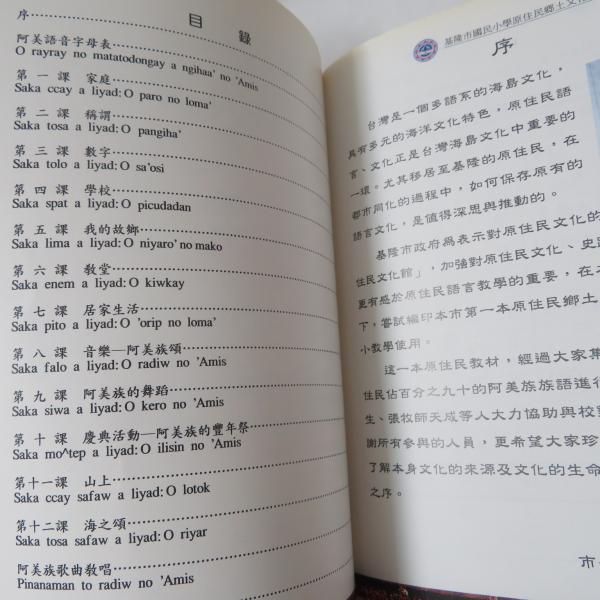 目 錄
序
阿美語音字母表
O rayray no matatodongay a ngihaa' no 'Amis
第 一 課 家庭
Saka ccay a liyad: O paro no loma'
第 二 課 稱謂
Saka tosa a liyad: O pangiha'
第 三 課 數字
Saka tolo a liyad: O sa'osi
第 四 課 學校
Saka spat a liyad: O picudadan
第 五 課 我的故鄉
Saka lima a liyad: O niyaro' no mako
第 六 課 教堂
Saka enem a liyad: O kiwkay
第 七 課 居家生活
Saka pito a liyad: O 'orip no loma'
第 八 課 音樂─阿美族頌
Saka falo a liyad: O radiw no 'Amis
第 九 課 阿美族的舞蹈
Saka siwa a liyad: O kero no 'Amis
第 十 課 慶典活動─阿美族的豐年祭
Saka mo^tep a liyad: O ilisin no 'Amis
第十一課 山上
Saka ccay safaw a liyad: O lotok
第十二課 海之頌
Saka tosa safaw a liyad: O riyar
阿美族歌曲教唱
Pinanaman to radiw no 'Amis
基隆市國民小學原住民鄉土文化
序
台灣是一個多語系的海島文化，
具有多元的海洋文化特色，原住民語
言、文化正是台灣海島文化中重要的
一環。尤其移居至基隆的原住民，在
都市同化的過程中，如何保存原有的
語言文化，是值得深思與推動的。
基隆市政府為表示對原住民文化的
住民文化館」，加強對原住民文化、史
更有感於原住民語言教學的重要，在
下，嘗試編印本市第一本原住民鄉土
小教學使用。
這一本原住民教材，經過大家集
住民佔百分之九十的阿美族族語進行
生、張牧師天成等人大力協助與校
謝所有參與的人員，更希望大家珍
了解本身文化的來源及文化的生命
之序。
市